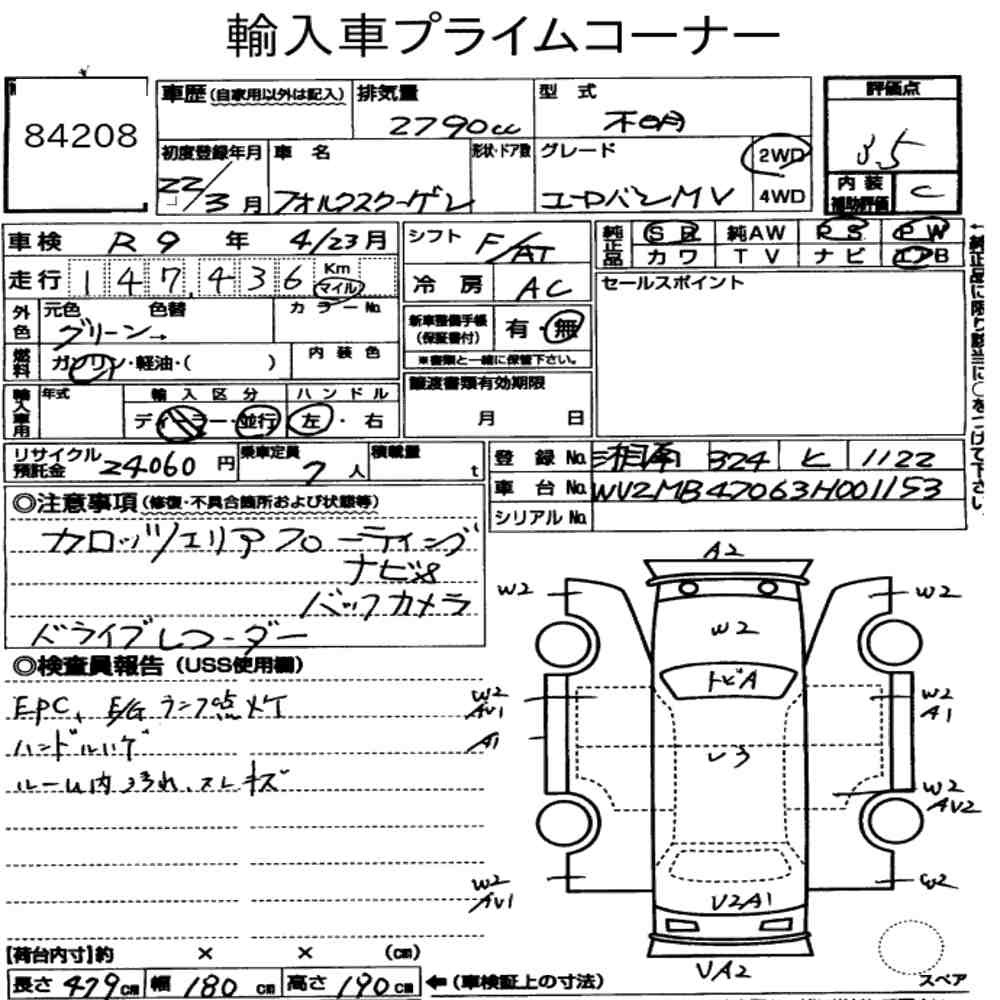 輸入車プライムコーナー
84208
車歴 (自家用以外は記入) 排気量 2790cc 型式 不明 評価点 3.5
初度登録年月 22/3月 車名 フォルクスワーゲン 形状・ドア数 グレード ユーロバンMV 2WD 4WD 内装補助評価 C
車検 R9年 4/23月 シフト F/AT 純正品 SR 純AW PS PW
走行 147,436 Km マイル 冷房 AC カワ TV ナビ エアB
外色 元色 グリーン→ 色替 カラーNo. 新車整備手帳 (保証書付) 有・無 セールスポイント
※書類と一緒に保管下さい。
燃料 ガソリン・軽油・( ) 内装色 譲渡書類有効期限 月 日
輸入車用 年式 輸入区分 ディーラー・並行 ハンドル 左・右
リサイクル預託金 24060円 乗車定員 7人 積載量 t 登録No. 湘南 324 ヒ 1122
車台No. WV2MB47063H001153
シリアルNo.
◎注意事項 (修復・不具合箇所および状態等)
カロッツェリアフローティング
ナビ×8
バックカメラ
ドライブレコーダー
◎検査員報告 (USS使用欄)
EPC、E/Gランプ点灯
ハンドルハゲ
ルーム内ヨゴれ、スレキズ
A2
W2 W2
W2
トビA
W2 AV1 W2 A1
A1 レ3
W2 AV2
W2 AV1 W2
V2A1
VA2
スペア
[荷台内寸]約 × × (cm)
長さ 479cm 幅 180cm 高さ 190cm ←(車検証上の寸法)
←純正品に限り該当に○をつけて下さい